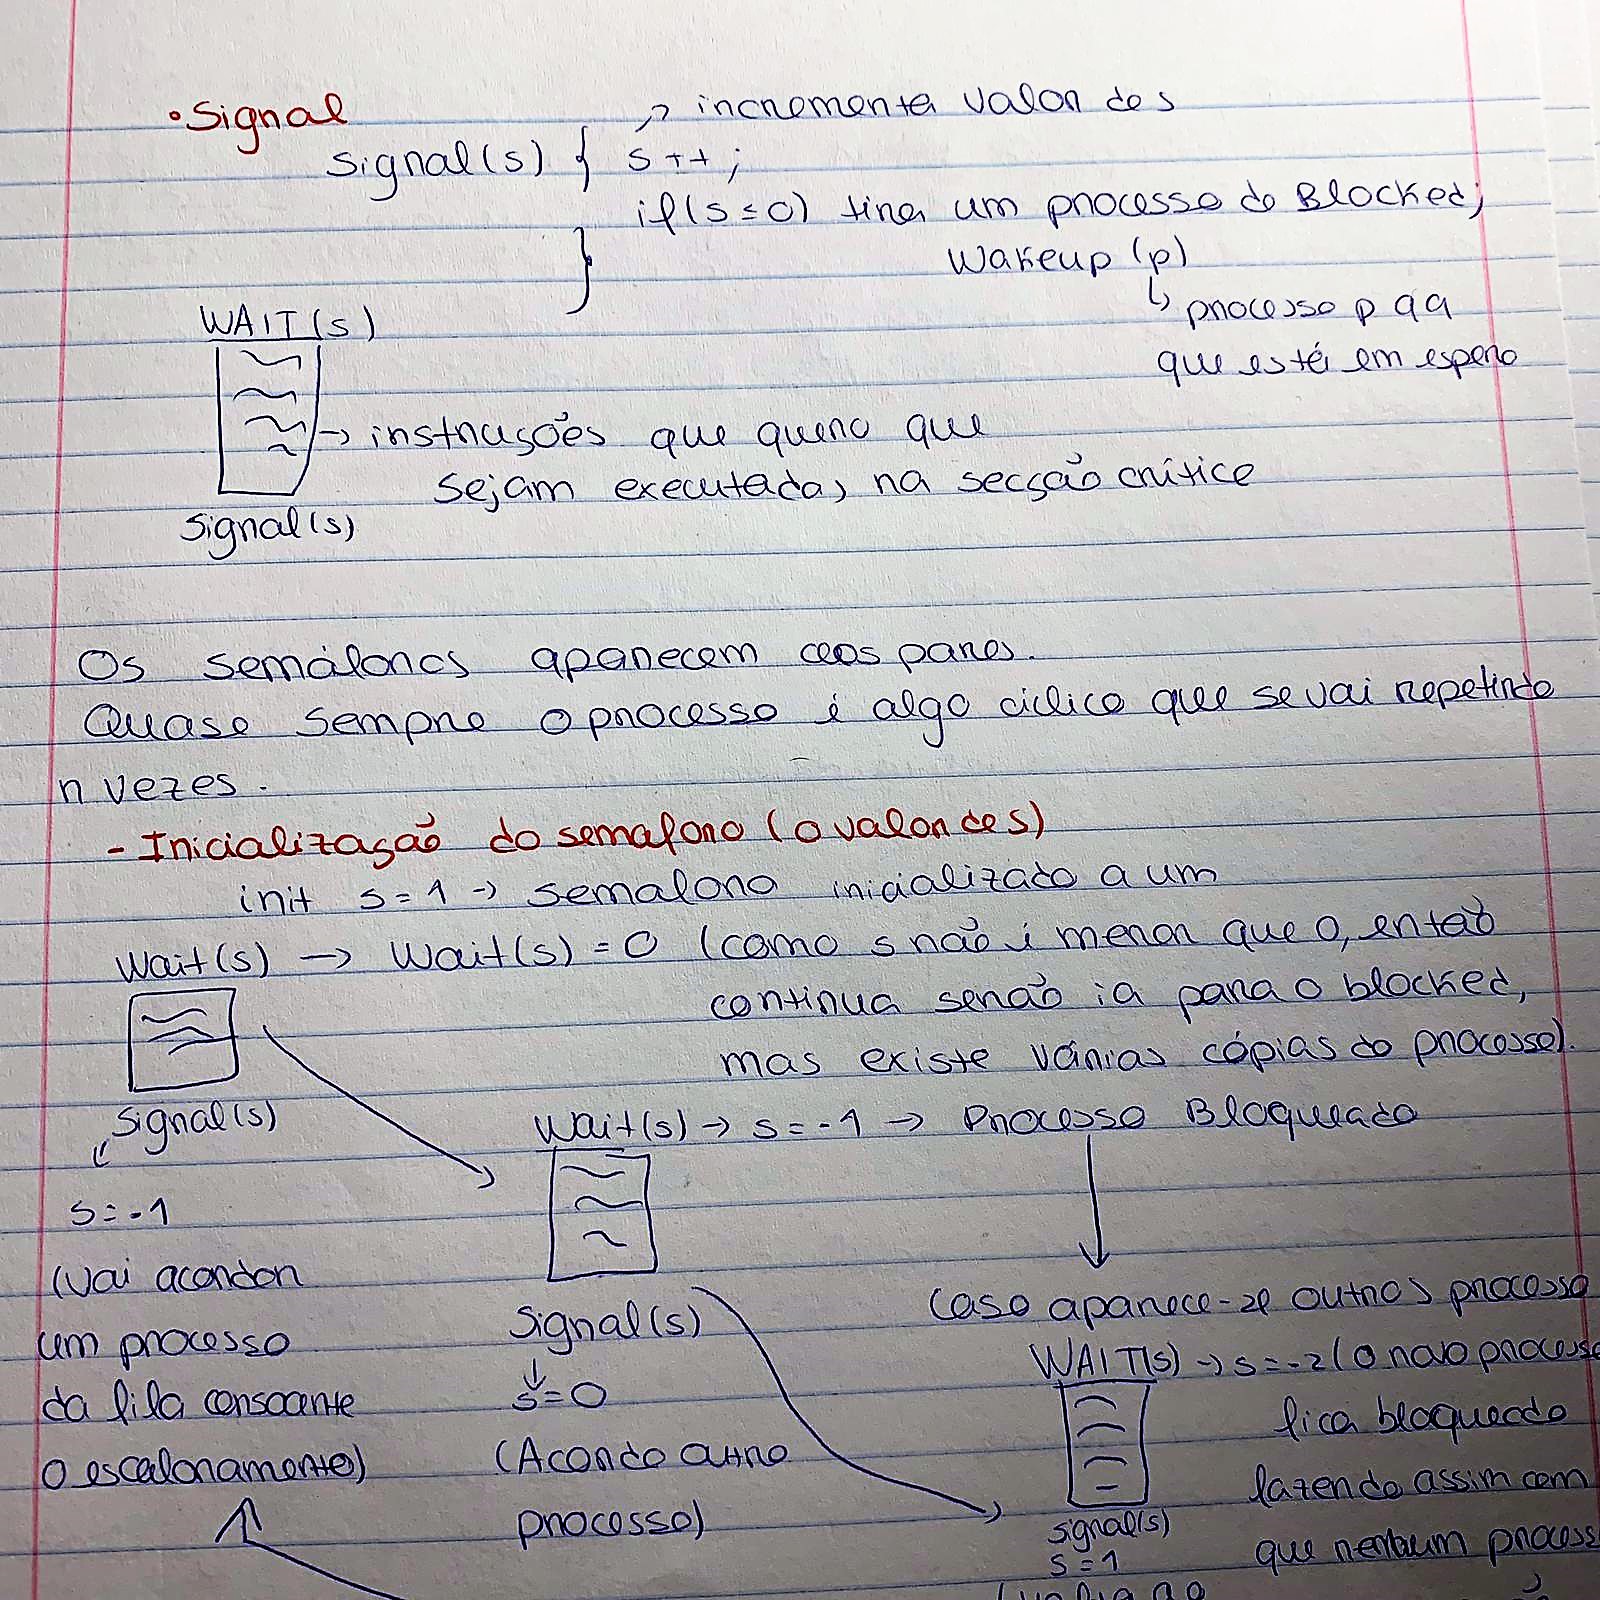 • Signal
→ incrementa valor de s
signal(s) { s++;
if(s≤0) tira um processo do Blocked;
}
Wakeup (p)
↳ processo p qq
que está em espera
WAIT(s)
→ instruções que quero que
sejam executadas na secção crítica
Signal(s)
Os semáforos aparecem aos pares.
Quase sempre o processo é algo ciclico que se vai repetindo
n vezes.
- Inicialização do semaforo (o valor de s)
init s=1 → semaforo inicializado a um
Wait(s) → Wait(s) = 0 (como s não é menor que 0, então
continua senão ia para o blocked,
mas existe várias cópias do processo).
Signal(s)
Wait(s) → s=-1 → Processo Bloqueado
s=-1
(vai acordar
um processo
da fila consoante
o escalonamento)
Signal(s)
s=0
(Acordo outro
processo)
Caso aparece-se outros processo
WAIT(s) → s=-2 (o novo processo
fica bloqueado
fazendo assim com
que nenhum process
signal(s)
s=1